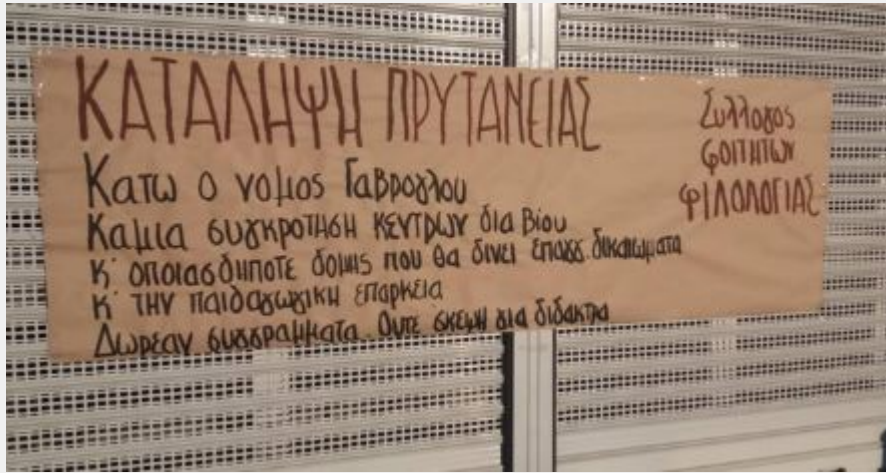 ΚΑΤΑΛΗΨΗ ΠΡΥΤΑΝΕΙΑΣ
Κατω ο νομος Γαβρογλου
Καμια συγκροτηση κεντρων δια βίου
κ' οποιασδηποτε δομης που θα δινει επαγγ. δικαιωματα
κ' την παιδαγωγικη επαρκεια
Δωρεαν συγγραμματα. Ουτε σκεψη για διδακτρα
Συλλογος
φοιτητων
ΦΙΛΟΛΟΓΙΑΣ